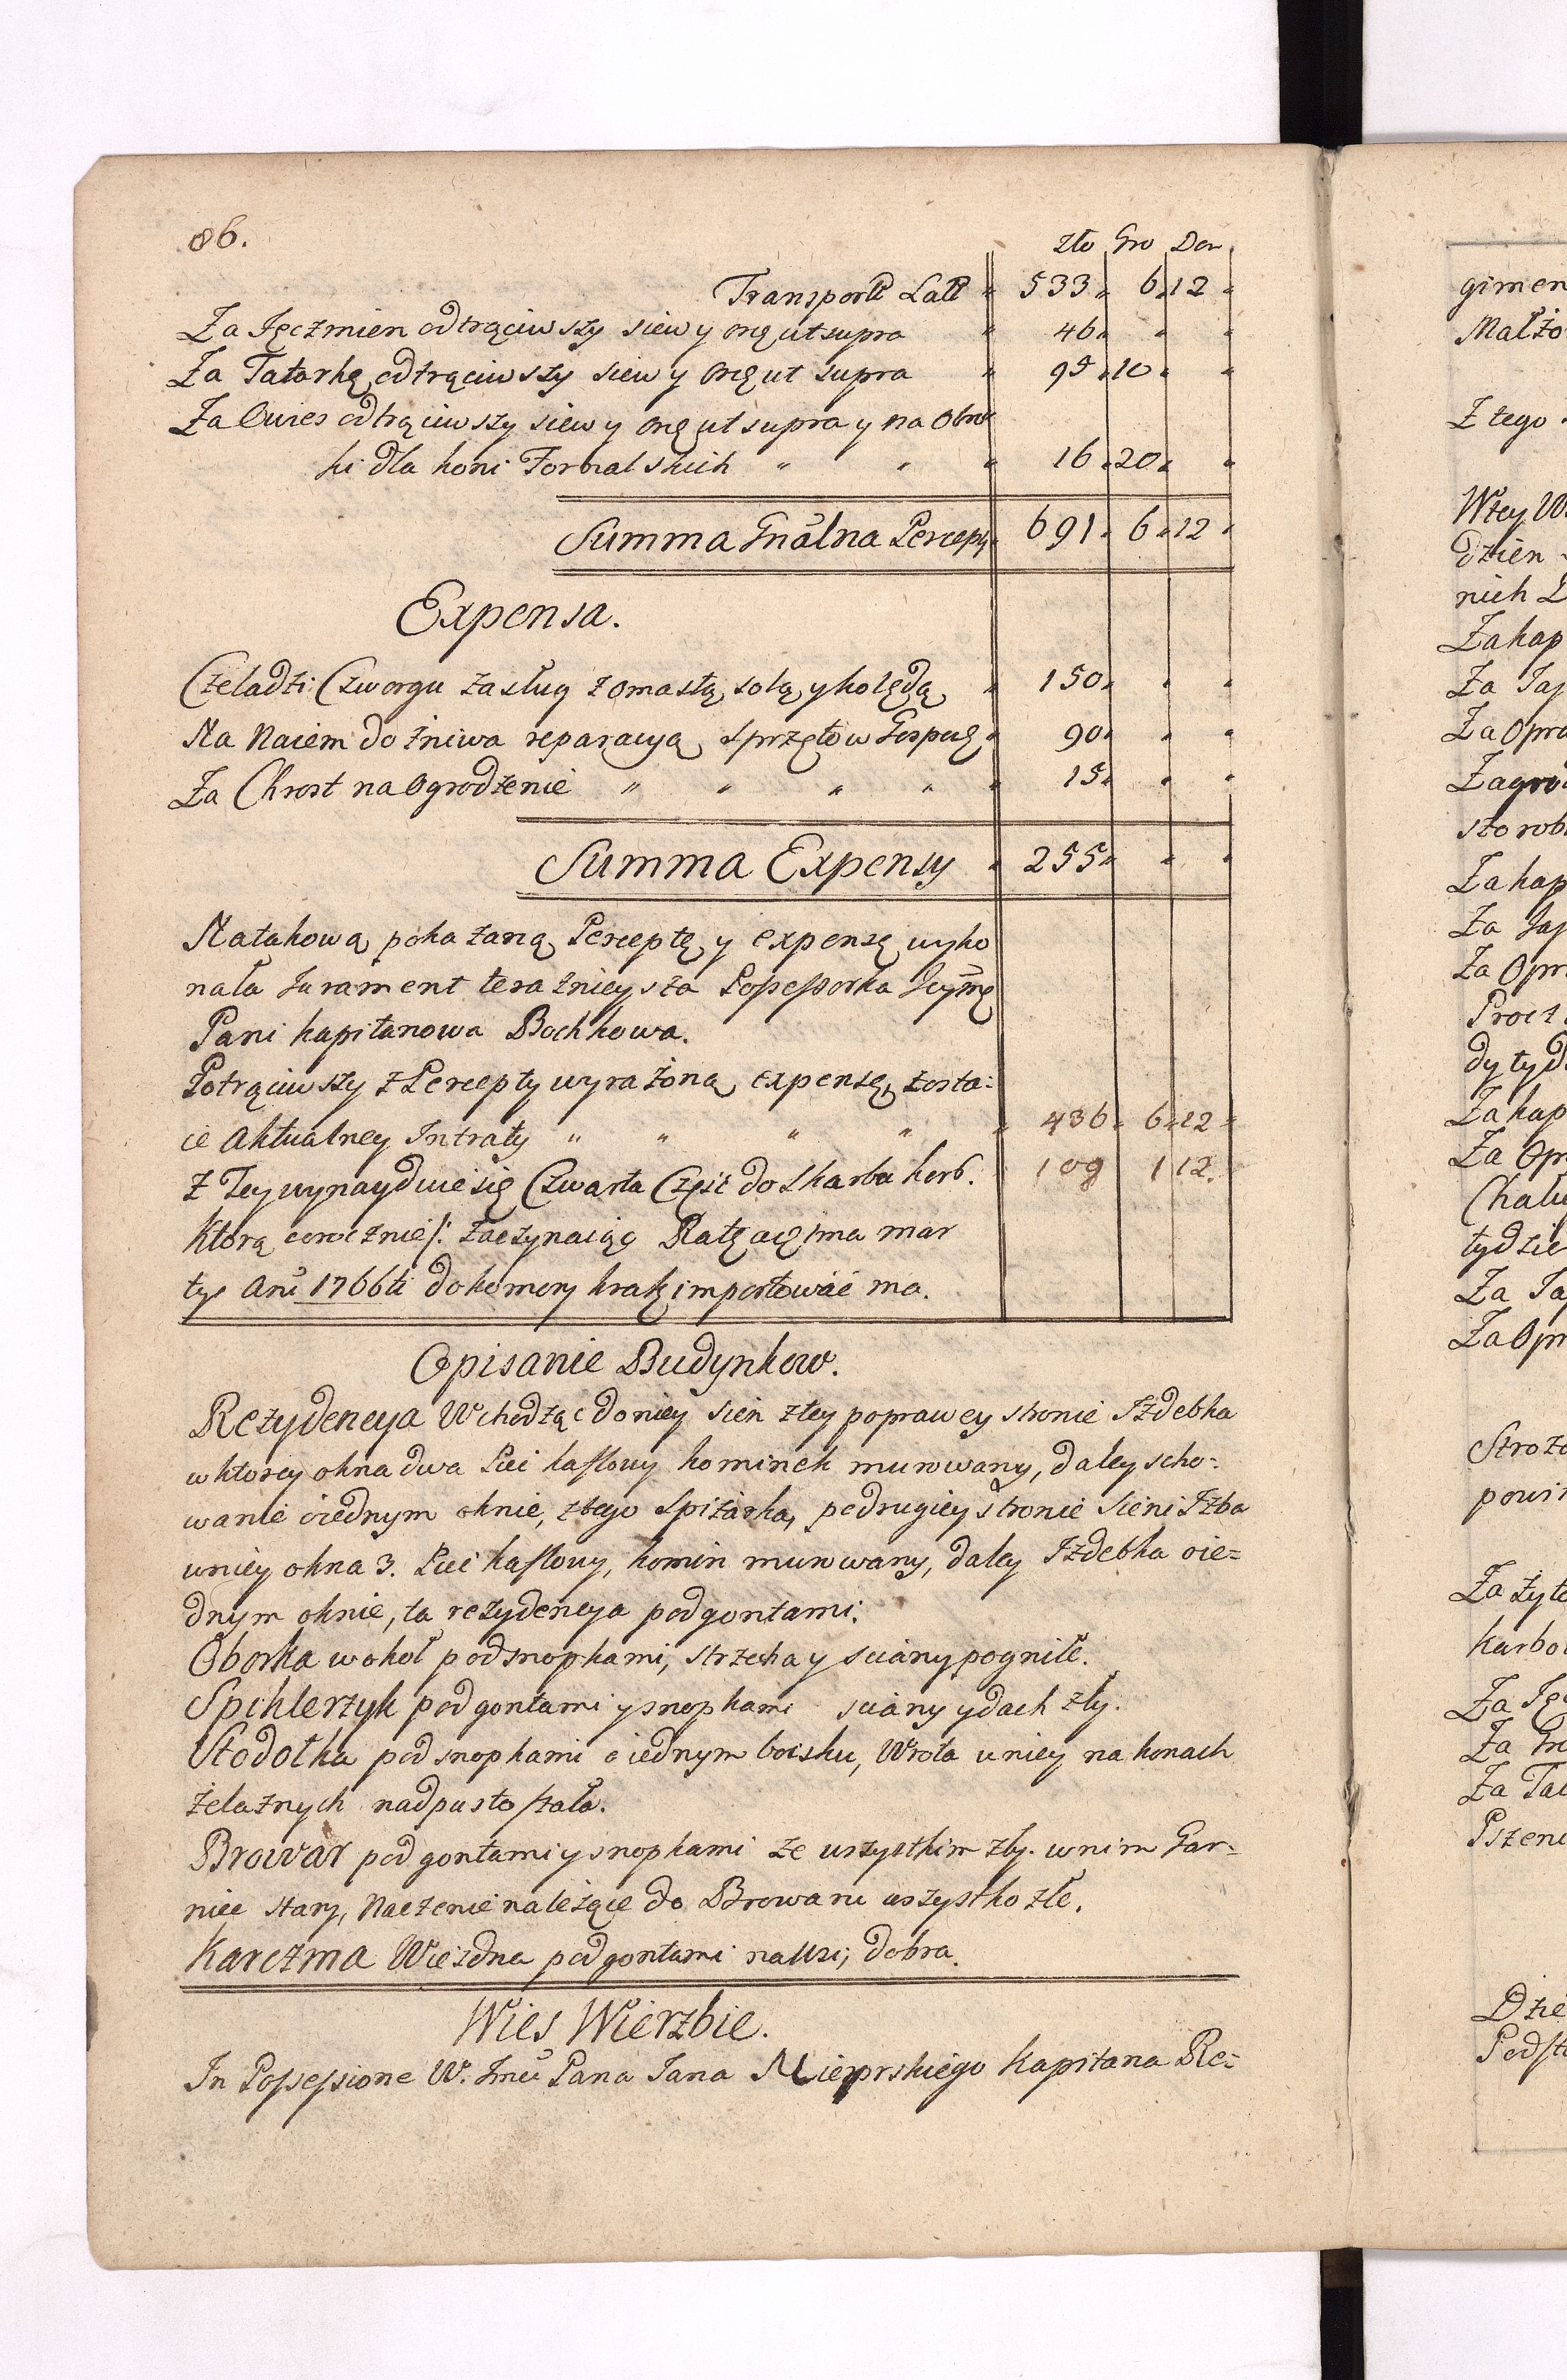 86.
Zło Gro Den
Transport Lat[t] " 533 " 6 " 12 "
Za Jęczmien odtrąciwszy siew y orę ut supra " 46 " " "
Za Tatarkę odtrąciwszy siew y orę ut supra " 95 " 10 " "
Za Owies odtrąciwszy siew y orę ut supra y na Obro
ki dla koni Fornalskich " " " 16 " 20 " "
Summa Gnãlna Percepty 691 " 6 " 12 "
Expensa.
Czeladzi Czworgu zasług z omastą, solą y kolędą " 150 " " "
Na Naiem do żniwa reparacyą Sprzętow Gospod: " 90 " " "
Za Chrost na Ogrodzenie " " " " " 15 " " "
Summa Expensy " 255 " " "
Na takową pokazaną Perceptę y expensę wyko
nała Jurament teraznieysza Possessorka Jeymę
Pani Kapitanowa Bochkowa.
Potrąciwszy z Percepty wyrażoną expensę, zosta:
ie Aktualney Intraty " " " " " 436 " 6 " 12 "
Z Tey wynayduie się Czwarta Częsc do Skarbu Kor6. 109 1 12.
Ktorą corocznie/: zaczynaiąc Ratę a
tys 1766ti do komory importować ma.
Opisanie Budynkow.
Rezydencya Wchodząc do niey sien z tey po prawey stronie Izdebka
w ktorey okna dwa Piec kaflowy kominek murowany, daley scho:
wanie o iednym oknie, z tego Spiżarka, po drugiey stronie Sieni Izba
w niey okna 3. Piec kaflowy, komin murowany, daley Izdebka o ie=
dnym oknie, ta rezydencya pod gontami.
Oborka wokoł pod snopkami, strzecha y sciany pogniłe.
Spichlerzyk pod gontami y snopkami sciany y dach zły.
Stodołka pod snopkami o iednym boisku, Wrota u niey na kunach
żelaznych nadpustoszała.
Browar pod gontami y snopkami ze wszystkim zły. w nim Gar=
niec stary, Naczenie należące do Browaru wszystko złe.
Karczma Wiezdna pod gontami na Wsi, dobra.
Wies Wierzbie.
In Possessione W. Jmci Pana Jana Kapitana Re:
gimen
Małżo
Z tego
W tey W
dzien
nich
Za kap
Za Jaj
Za Opra
Zagro
sto rob
Za kap
Za Jaj
Za Opr
Procz
dy tyd
Za kap
Za Opr
Chału
tydzie
Za Ja
Za Opr
Stroz
powi
Za żyt
Karbo
Za Ję
Za Gr
Za Tat
Pszen
Dzie
Podst